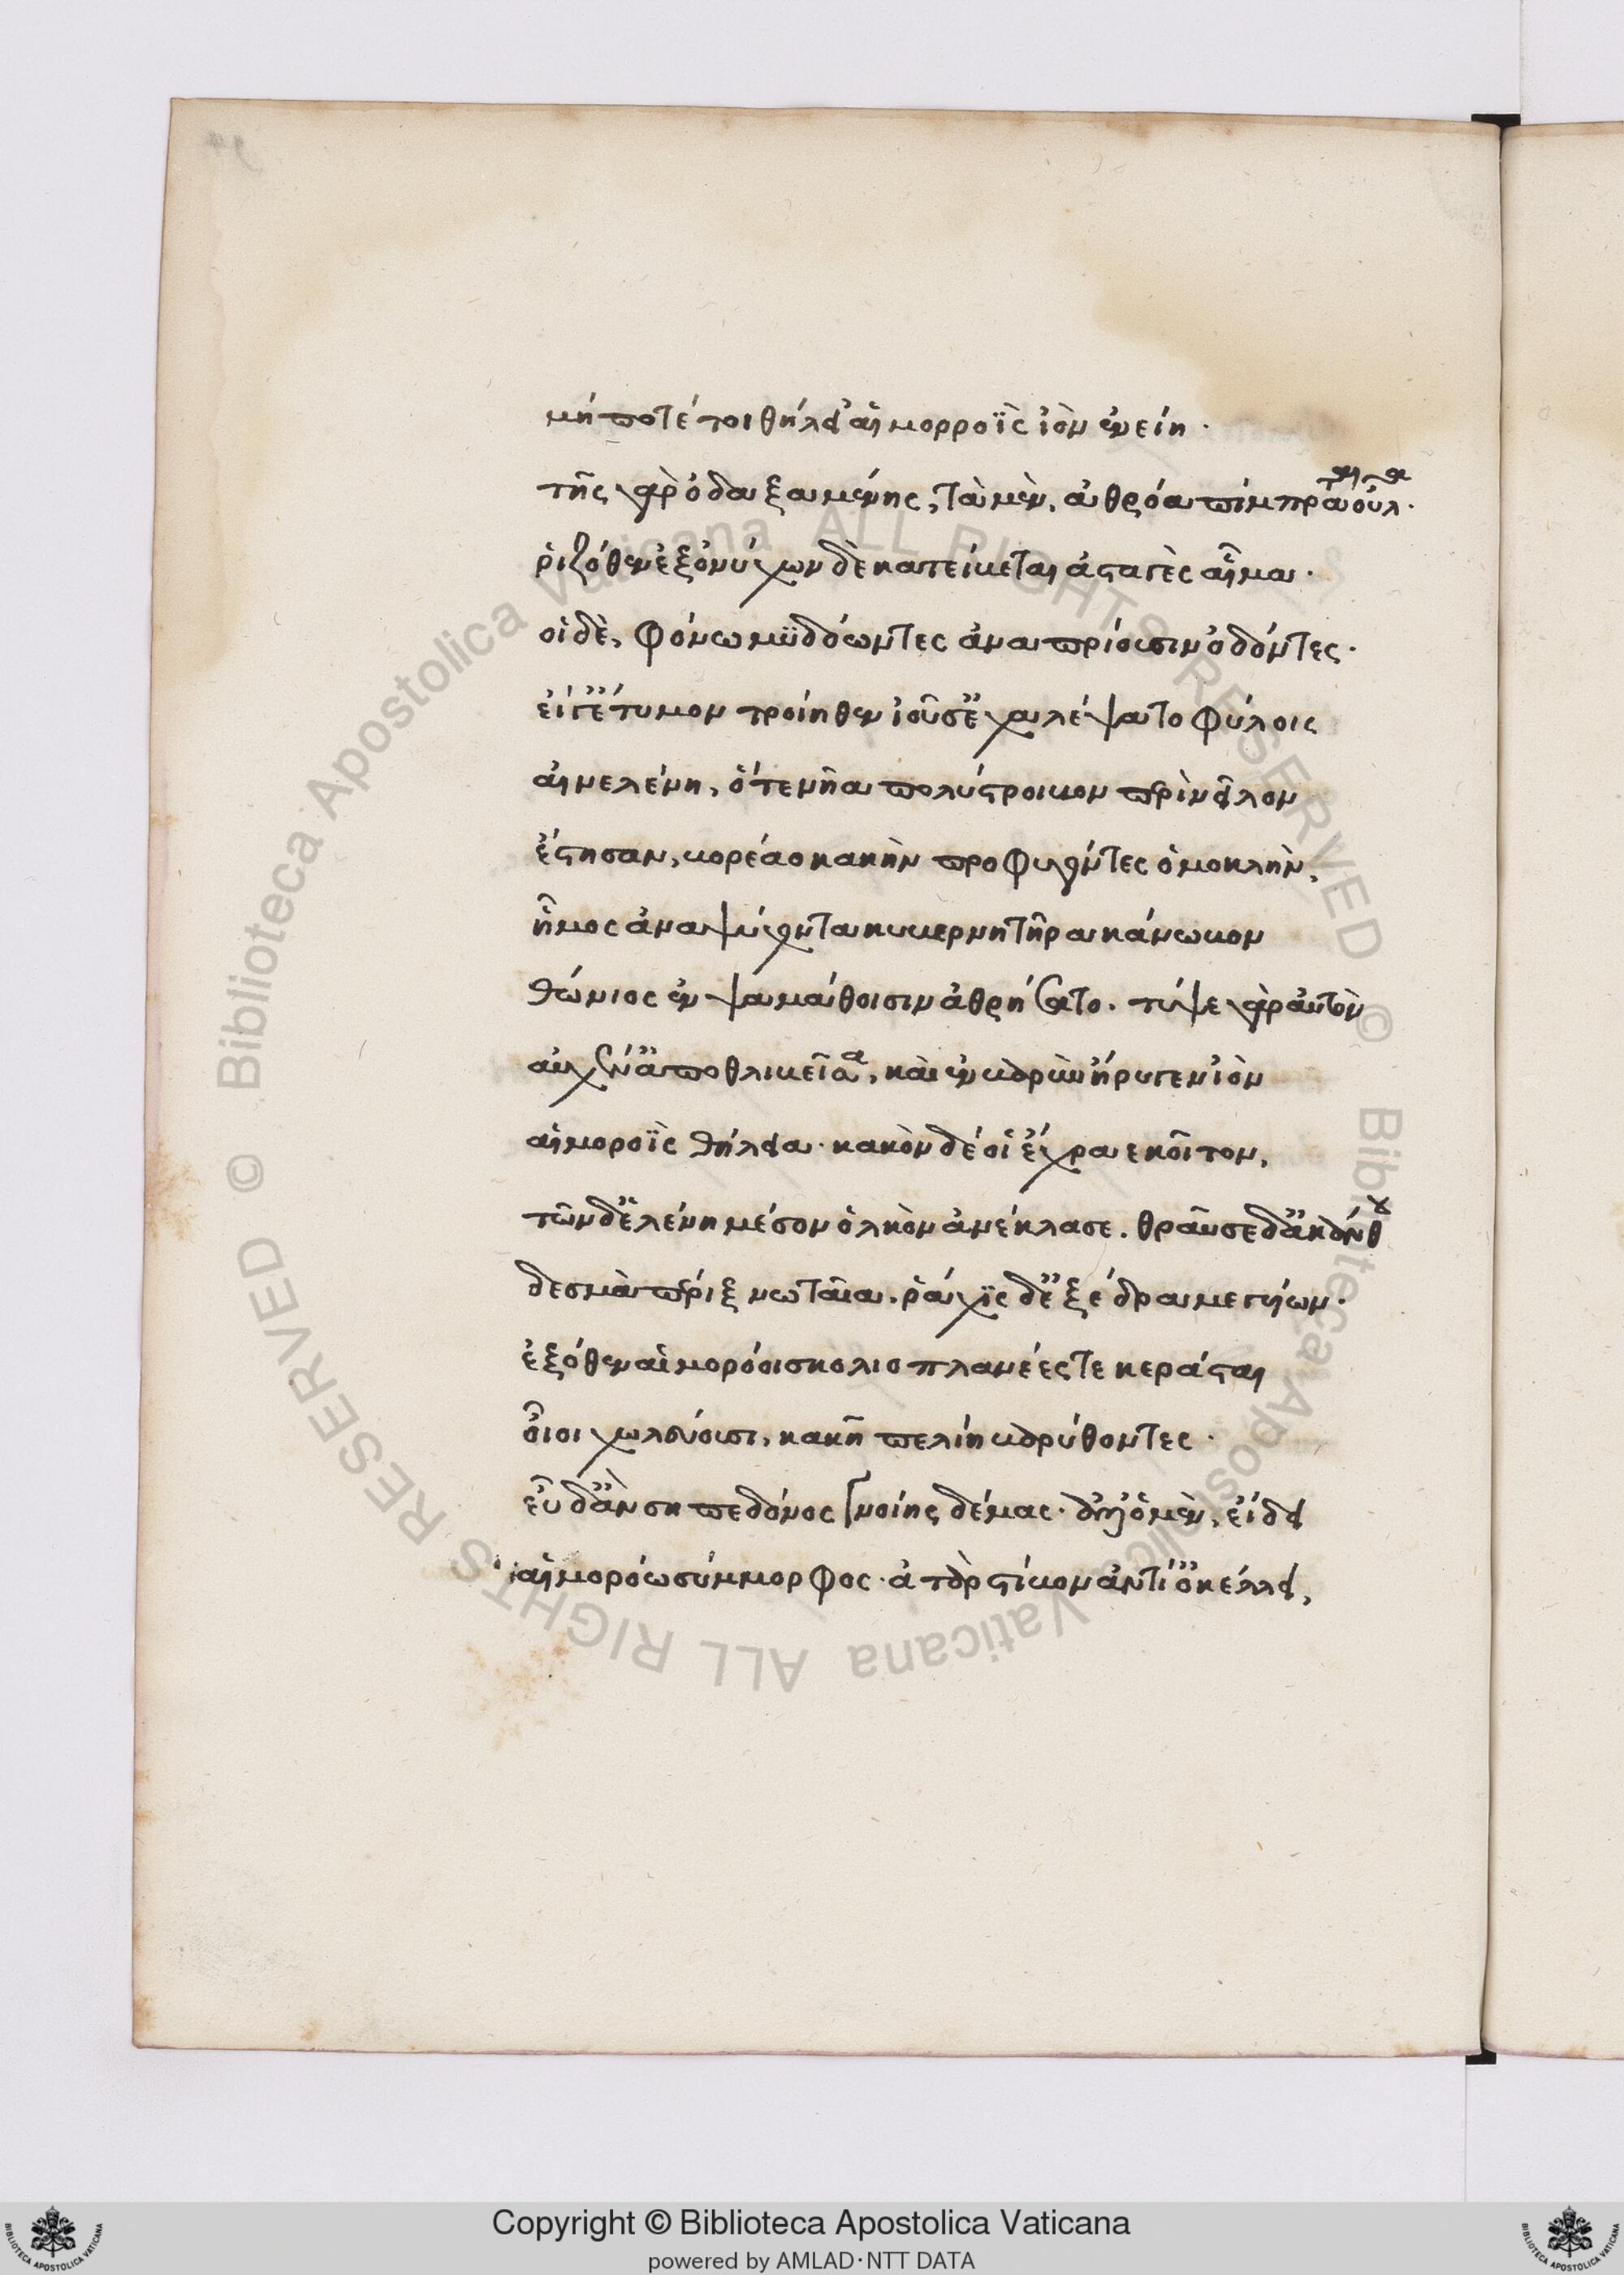 94
μή ποτέ τοι θήλει' αἱμορροῒς ἰὸν ἐνείη.
τῆς γὰρ ὀδαξαμένης, τὰ μὲν, ἀθρόα πίμπραται οὖλα.
ῥιζόθεν ἐξ ὀνύχων δὲ κατείβεται ἀσταγὲς αἷμα.
οἱ δὲ, φόνω μϋδόωντες ἀναπρίουσιν ὀδόντες.
εἴ γ' ἔτυμον τροίηθεν ἰοῦσ' ἐχαλέψατο φύλοις
αἰνελένη, ὅτε νῆα πολύστροιβον πὰρ νεῖλον
ἔστησαν, βορέαο κακὴν προφυγόντες ὁμοκλήν,
ἦμος ἀναψύχοντα κυβερνητῆρα κάνωβον
θώνιος ἐν ψαμάθοισιν ἀθρήσατο. τύψε γὰρ αὐτὸν
αὐχέν' ἀποθλιβεῖσα, καὶ ἐν βαρὺν ἤρυγεν ἰὸν
αἱμοροῒς θήλεια. κακὸν δέ οἱ ἔχραε κοῖτον,
τῶν δ' ἑλένη μέσον ὁλκὸν ἀνέκλασε. θραῦσε δ' ἀκάνθης
δεσμὰ πέριξ νωταῖα. ῥάχις δ' ἐξέδραμε γυίων.
ἐξόθεν αἱμορόοι σκολιοπλανέες τε κεράσται
οἶοι χωλεύουσι, κακῆ πελίη βαρύθοντες.
εὖ δ' ἂν σηπεδόνος γνοίης δέμας. ἄλλο μὲν, εἴδει
αἱμορόω σύμμορφος. ἀτὰρ στίβον ἀντί' ὀκέλλει,
Copyright © Biblioteca Apostolica Vaticana
powered by AMLAD·NTT DATA